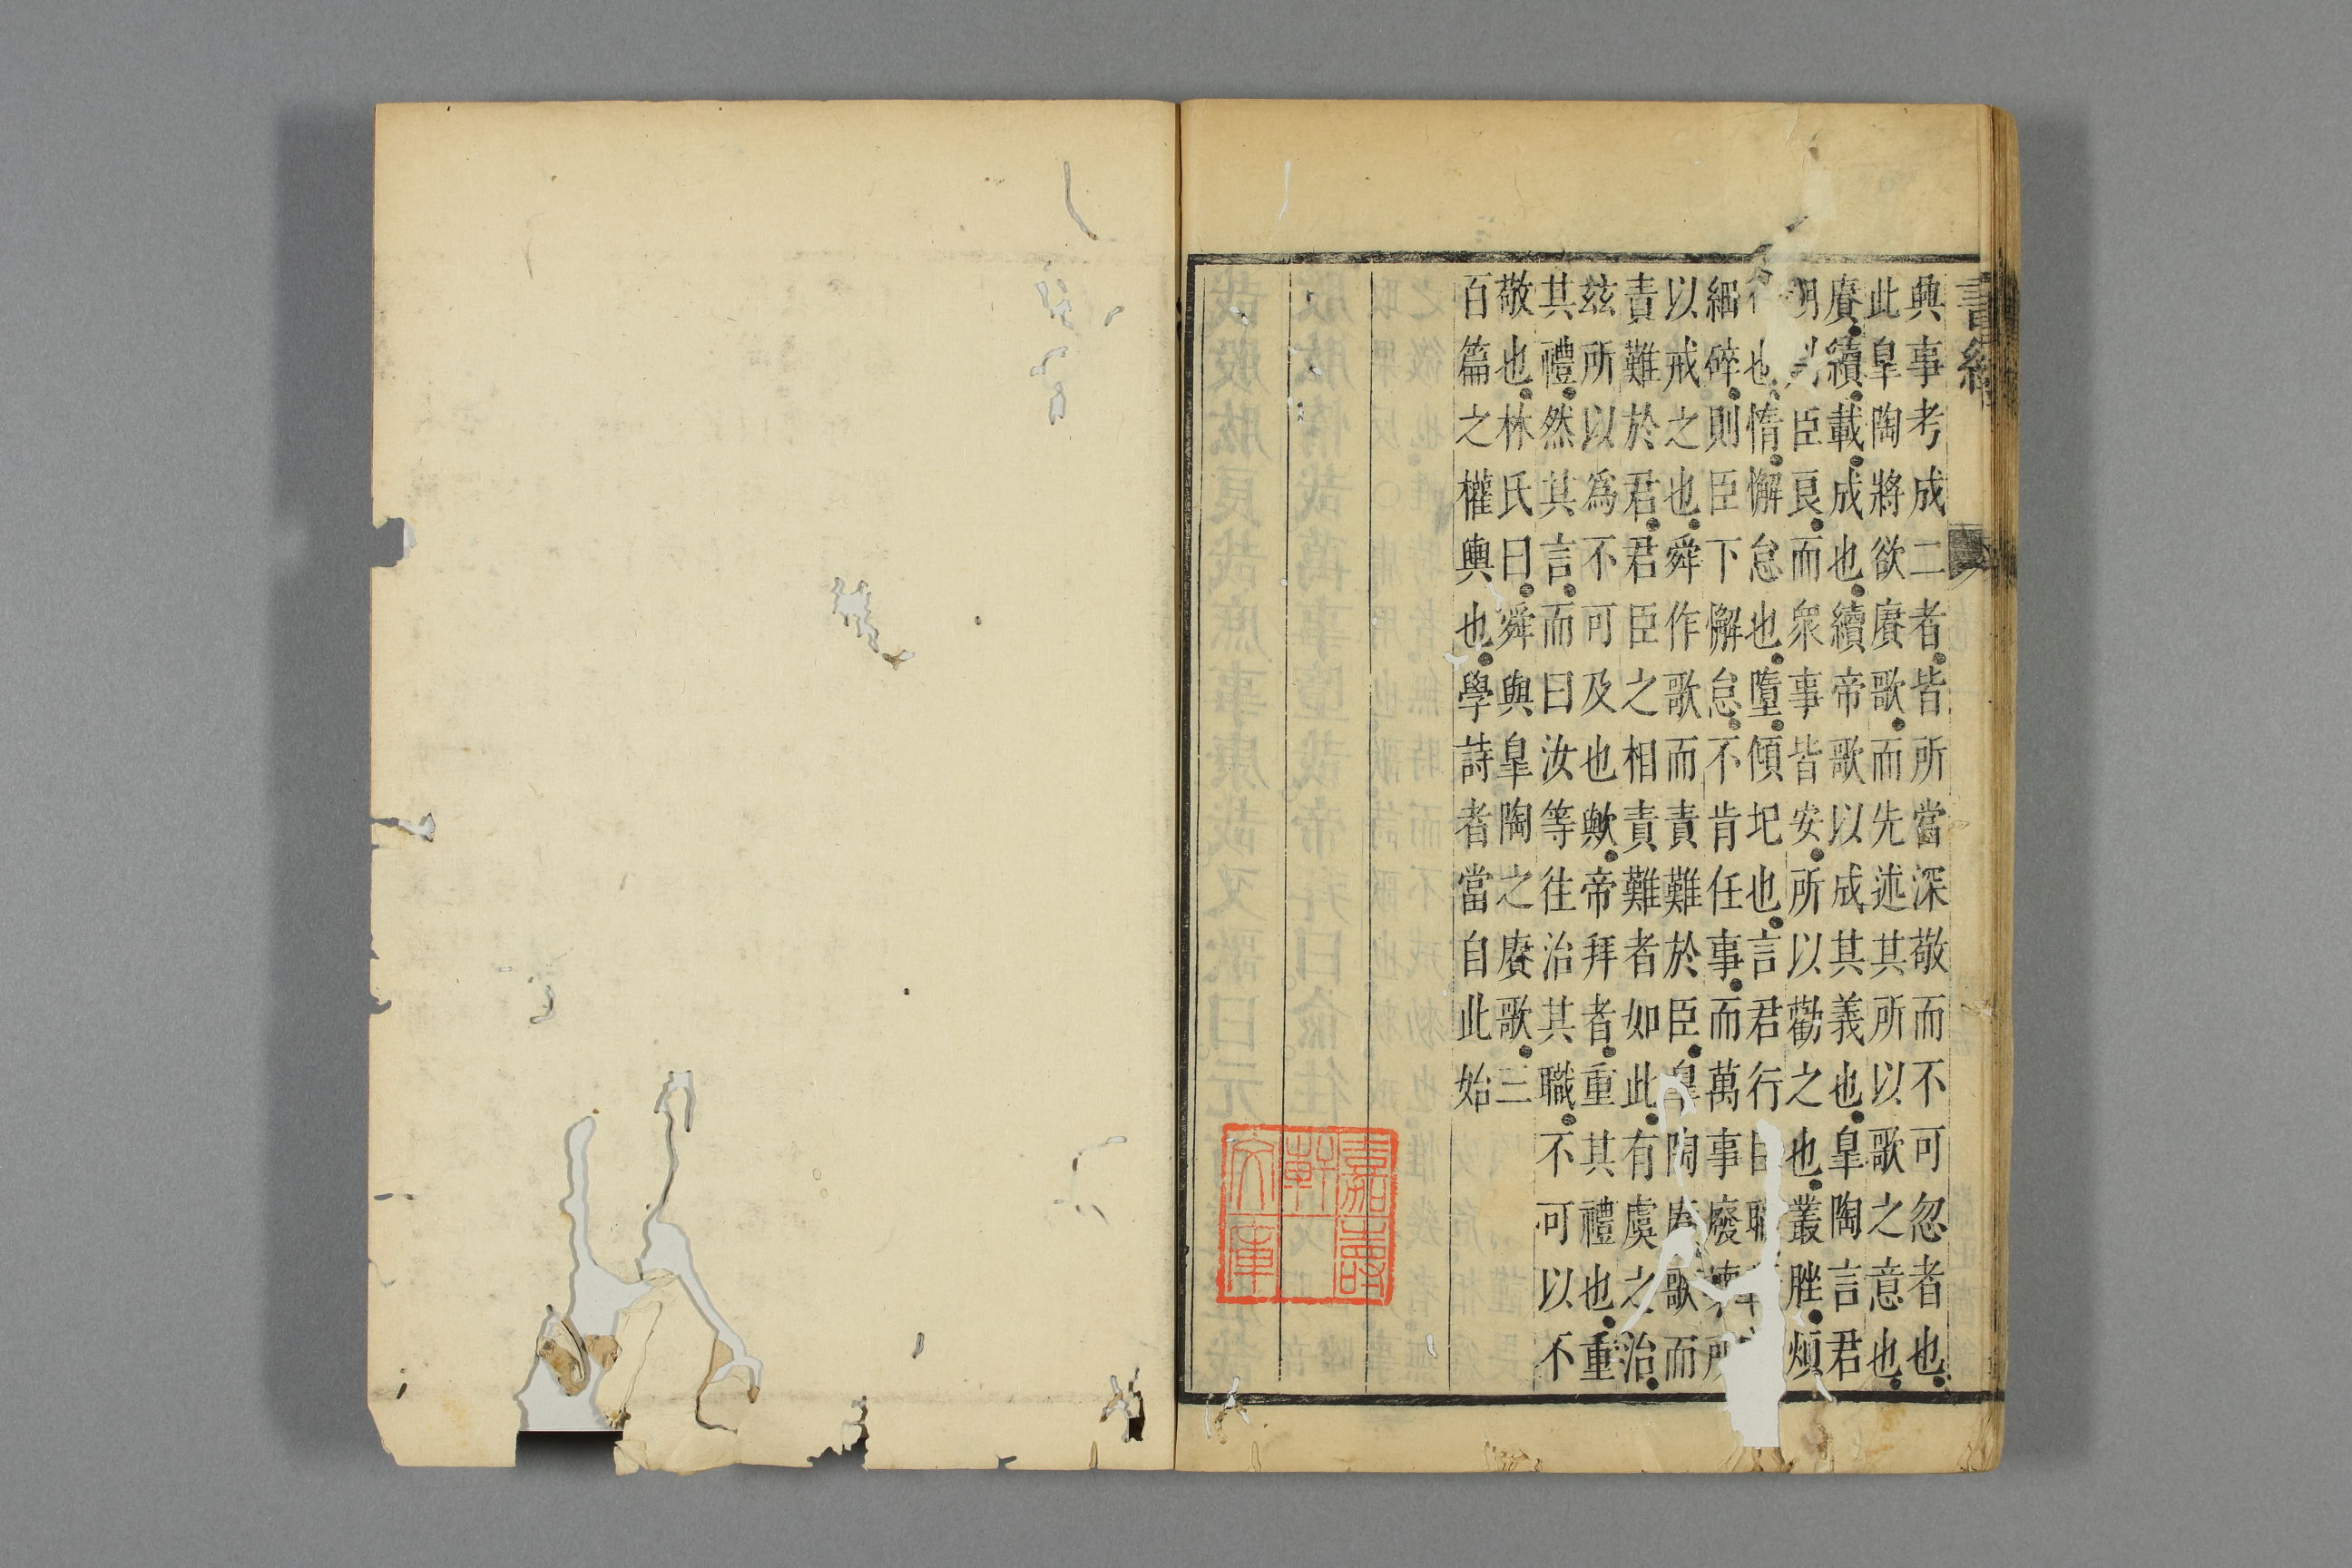 書經
興事考成二者皆所當深敬而不可忽者也
此皐陶將欲賡歌而先述其所以歌之意也
賡續載成也續帝歌以成其義也皐陶言君
明則臣良而衆事皆安所以勸之也叢脞煩
也惰懈怠也墮傾圮也言君行臣職
細碎則臣下懈怠不肯任事而萬事廢壞所
以戒之也舜作歌而責難於臣皐陶賡歌而
責難於君君臣之相責難者如此有虞之治
茲所以爲不可及也歟帝拜者重其禮也重
其禮然其言而曰汝等往治其職不可以不
敬也林氏曰舜與皐陶之賡歌三
百篇之權輿也學詩者當自此始
嘉壽
軒
文庫